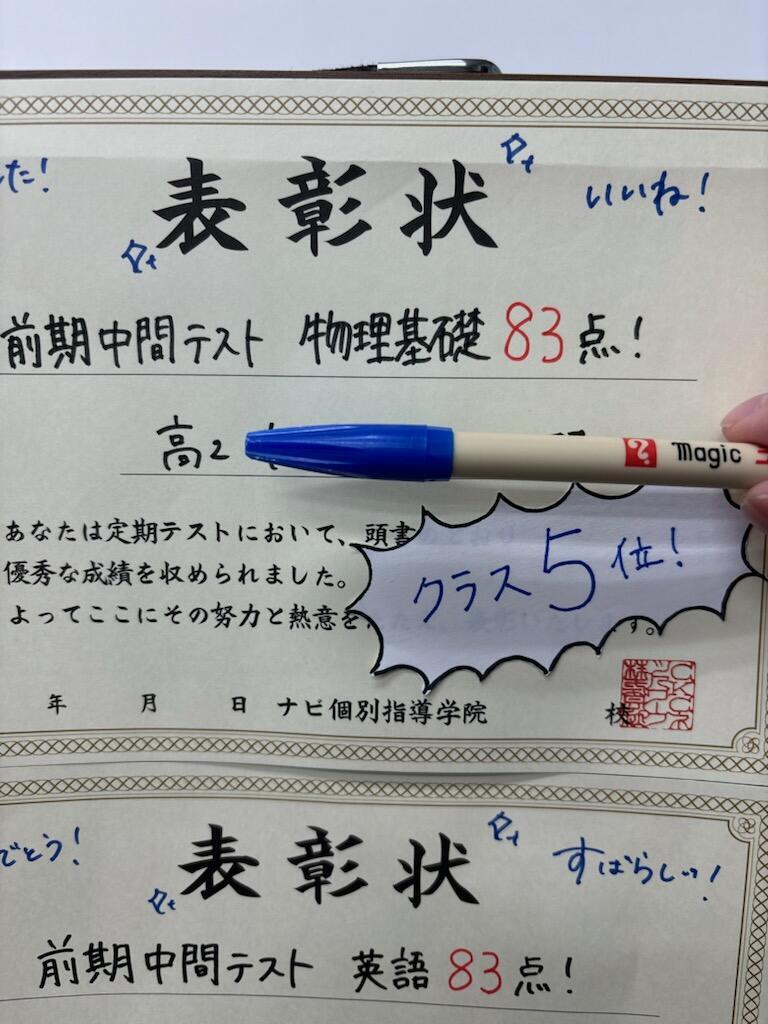 した!
いいね!
表彰状
前期中間テスト 物理基礎 83点!
高2
Magic
あなたは定期テストにおいて、頭書のとおり
優秀な成績を収められました。
よってここにその努力と熱意をたたえ、表彰いたします。
クラス5位!
年 月 日 ナビ個別指導学院 校
でとう!
すばらしい!
表彰状
前期中間テスト 英語 83点!